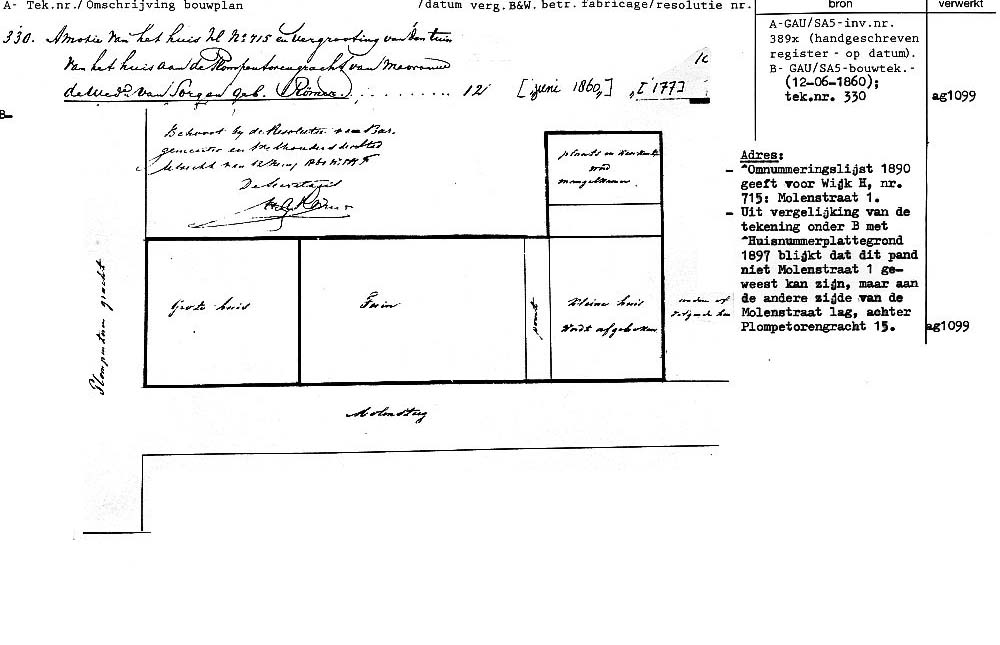 A- Tek.nr./ Omschrijving bouwplan /datum verg. B&W. betr. fabricage/resolutie nr. bron verwerkt
330. Amotie van het huis H No 715 en vergrooting van den tuin
van het huis aan de Plompentorengracht van Mevrouwe
de Wed. van Sorgen geb. Römer. . . . . . . . . . . 12 [juni 1860,] [177]
A-GAU/SA5-inv.nr.
389x (handgeschreven
register - op datum).
B- GAU/SA5-bouwtek.-
(12-06-1860);
tek.nr. 330
ag1099
B-
Behoort bij de Resolutie van
gemeester en Wethouders
Utrecht van 12
De Secretaris
plaats en
Adres:
- ^Omnummeringslijst 1890
geeft voor Wijk H, nr.
715: Molenstraat 1.
- Uit vergelijking van de
tekening onder B met
^Huisnummerplattegrond
1897 blijkt dat dit pand
niet Molenstraat 1 ge-
weest kan zijn, maar aan
de andere zijde van de
Molenstraat lag, achter
Plompetorengracht 15.
ag1099
Plompentoren gracht
Grote huis
Tuin
poort
Kleine huis
Wordt afgebroken
Molensteeg